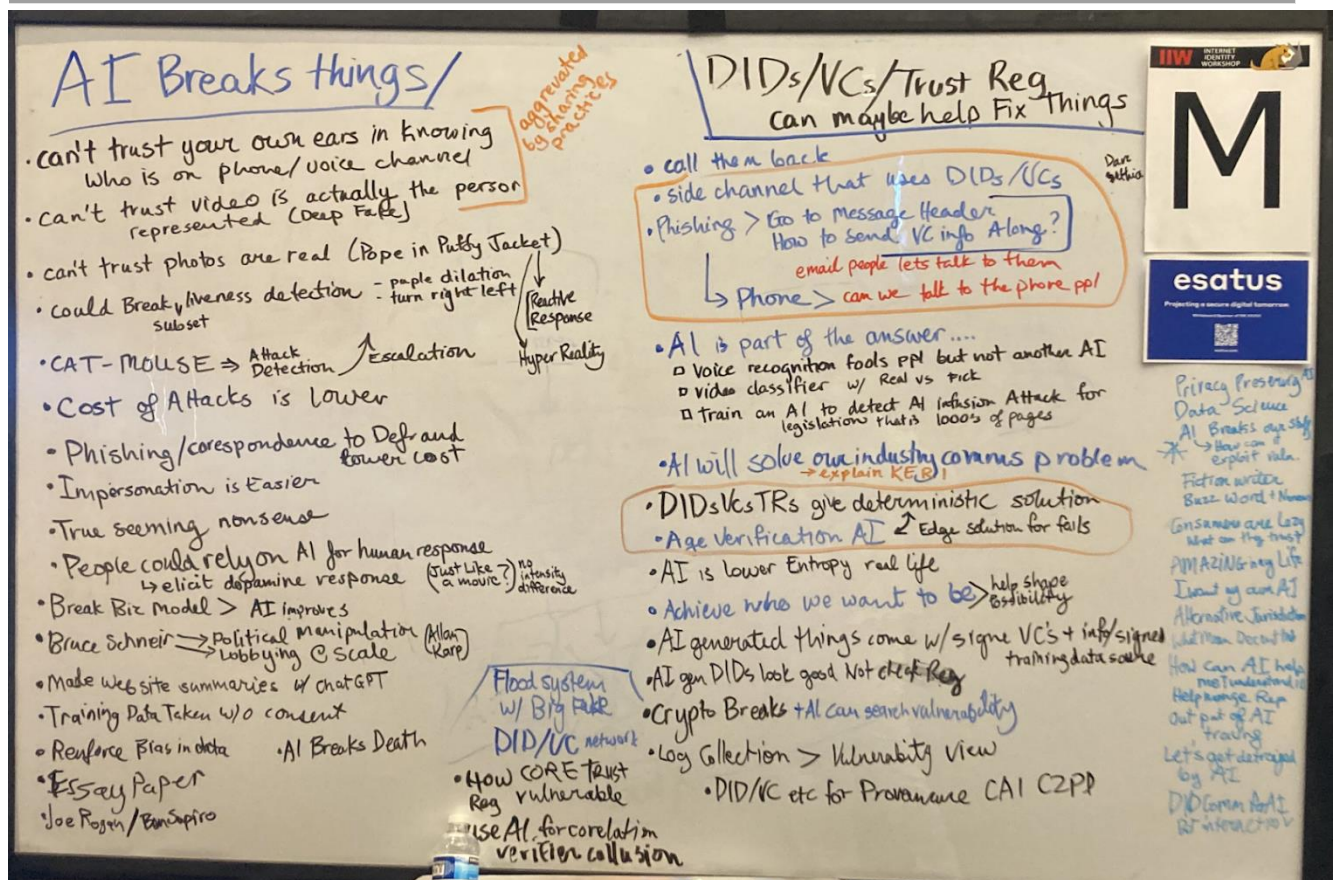 AI Breaks things/
aggrevated
by sharing
practices
• can't trust your own ears in knowing
who is on phone/voice channel
• can't trust video is actually the person
represented (Deep Fake)
• can't trust photos are real (Pope in Puffy Jacket)
• could Break liveness detection - puple dilation
subset - turn right left
Reactive
Response
Hyper Reality
• CAT-MOUSE ⇒ Attack
Detection Escalation
• Cost of Attacks is lower
• Phishing/corespondence to Defraud
lower cost
• Impersonation is Easier
• True seeming nonsense
• People could rely on AI for human response
↳ elicit dopamine response (Just Like a movie?) no intensity difference
• Break Biz Model > AI improves
• Bruce Schneir → Political Manipulation (Allan Karp)
→ Lobbying @ Scale
• Made website summaries w/ ChatGPT
• Training Data Taken w/o consent
• Renforce Bias in data • AI Breaks Death
• Essay Paper
• Joe Rogan/
Flood system
w/ Big Fake
DID/VC network
• How CORE TRUST
Reg vulnerable
use AI for corelation
verifier collusion
DIDs/VCs/Trust Reg
can maybe help Fix Things
• call them back
• side channel that uses DIDs/VCs
• Phishing > Go to Message Header
How to send VC info Along?
email people lets talk to them
↳ Phone > can we talk to the phone ppl
• AI is part of the answer....
□ Voice recognition fools ppl but not another AI
□ video classifier w/ Real vs
□ train an AI to detect AI infusion Attack for
legislation that is 1000s of pages
• AI will solve our industry comms problem
→ explain KERI
• DIDs VCs TRs give deterministic solution
• Age Verification AI Edge solution for fails
• AI is lower Entropy real life
• Achieve who we want to be > help shape
• AI generated things come w/ signe VC's + info/signed
training data source
• AI gen DIDs look good Not check Reg
• Crypto Breaks + AI can search vulnerability
• Log Collection > Vulnerability view
• DID/VC etc for Provenance CAI
IIW INTERNET
IDENTITY
WORKSHOP
M
esatus
Projecting a secure digital tomorrow
Privacy Preserving AI
Data Science
AI Breaks our stuff
↳ How can it
exploit vuln.
Fiction writer
Buzz Word +
Consumers are Lazy
What can they trust
AMAZING my Life
I want my own AI
Alternative
How can AI help
me understand
Help
Out put of AI
Let's get
by AI
DIDComm